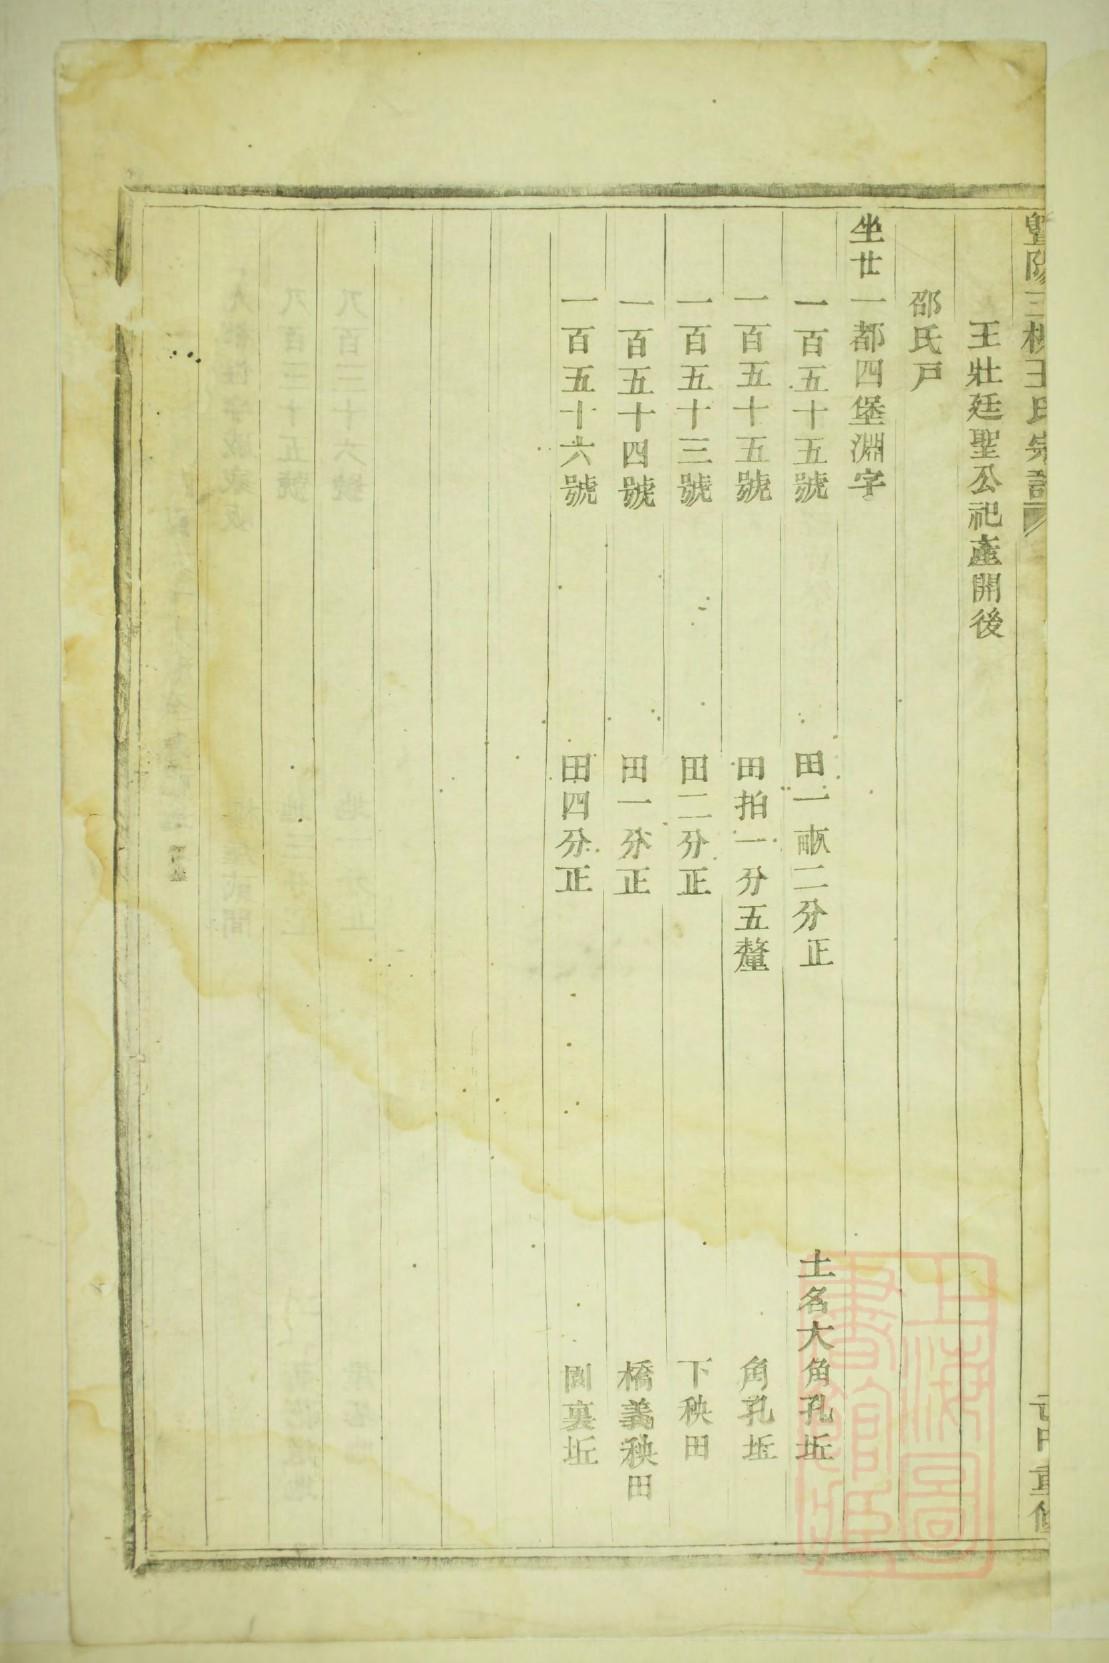 暨陽三槐王氏宗譜
王壯廷聖公祀產開後
邵氏戸
坐廿一都四堡淵字
一百五十五號 田一畝二分正 土名大角孔坵
一百五十五號 田拍一分五釐 角孔坵
一百五十三號 田二分正 下秧田
一百五十四號 田一分正 橋義秧田
一百五十六號 田四分正 園裏坵
重修
上海圖書館藏